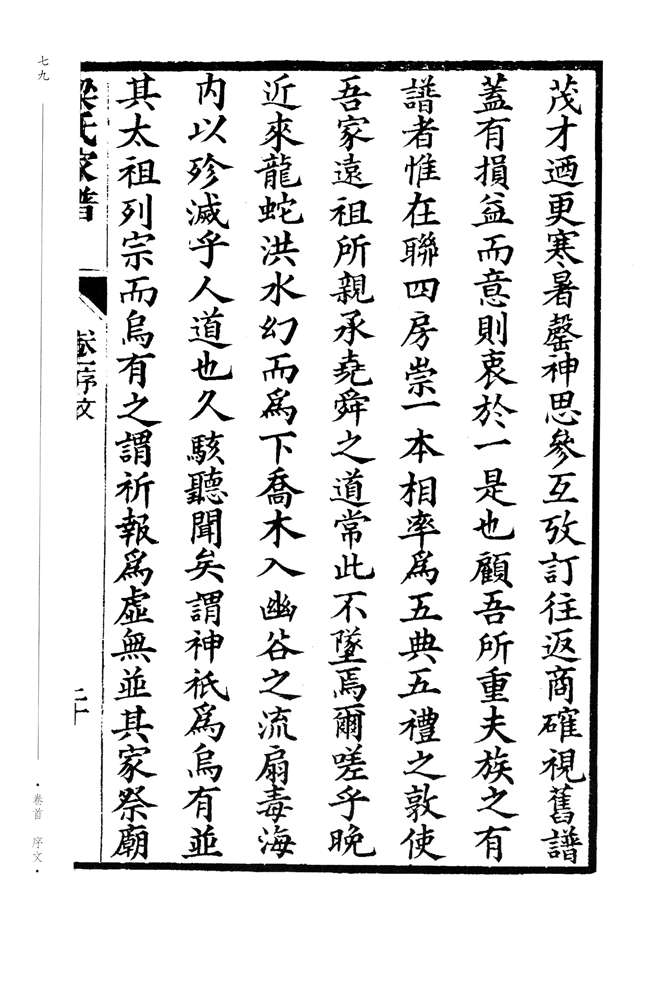 茂才迺更寒暑罄神思參互攷訂往返商確視舊譜
蓋有損益而意則衷於一是也顧吾所重夫族之有
譜者惟在聯四房崇一本相率爲五典五禮之敦使
吾家遠祖所親承堯舜之道常此不墜焉爾嗟乎晚
近來龍蛇洪水幻而爲下喬木入幽谷之流扇毒海
内以殄滅乎人道也久駭聽聞矣謂神祇爲烏有並
其太祖列宗而烏有之謂祈報爲虛無並其家祭廟
梁氏家譜
序文
二十
七九
·卷首 序文·